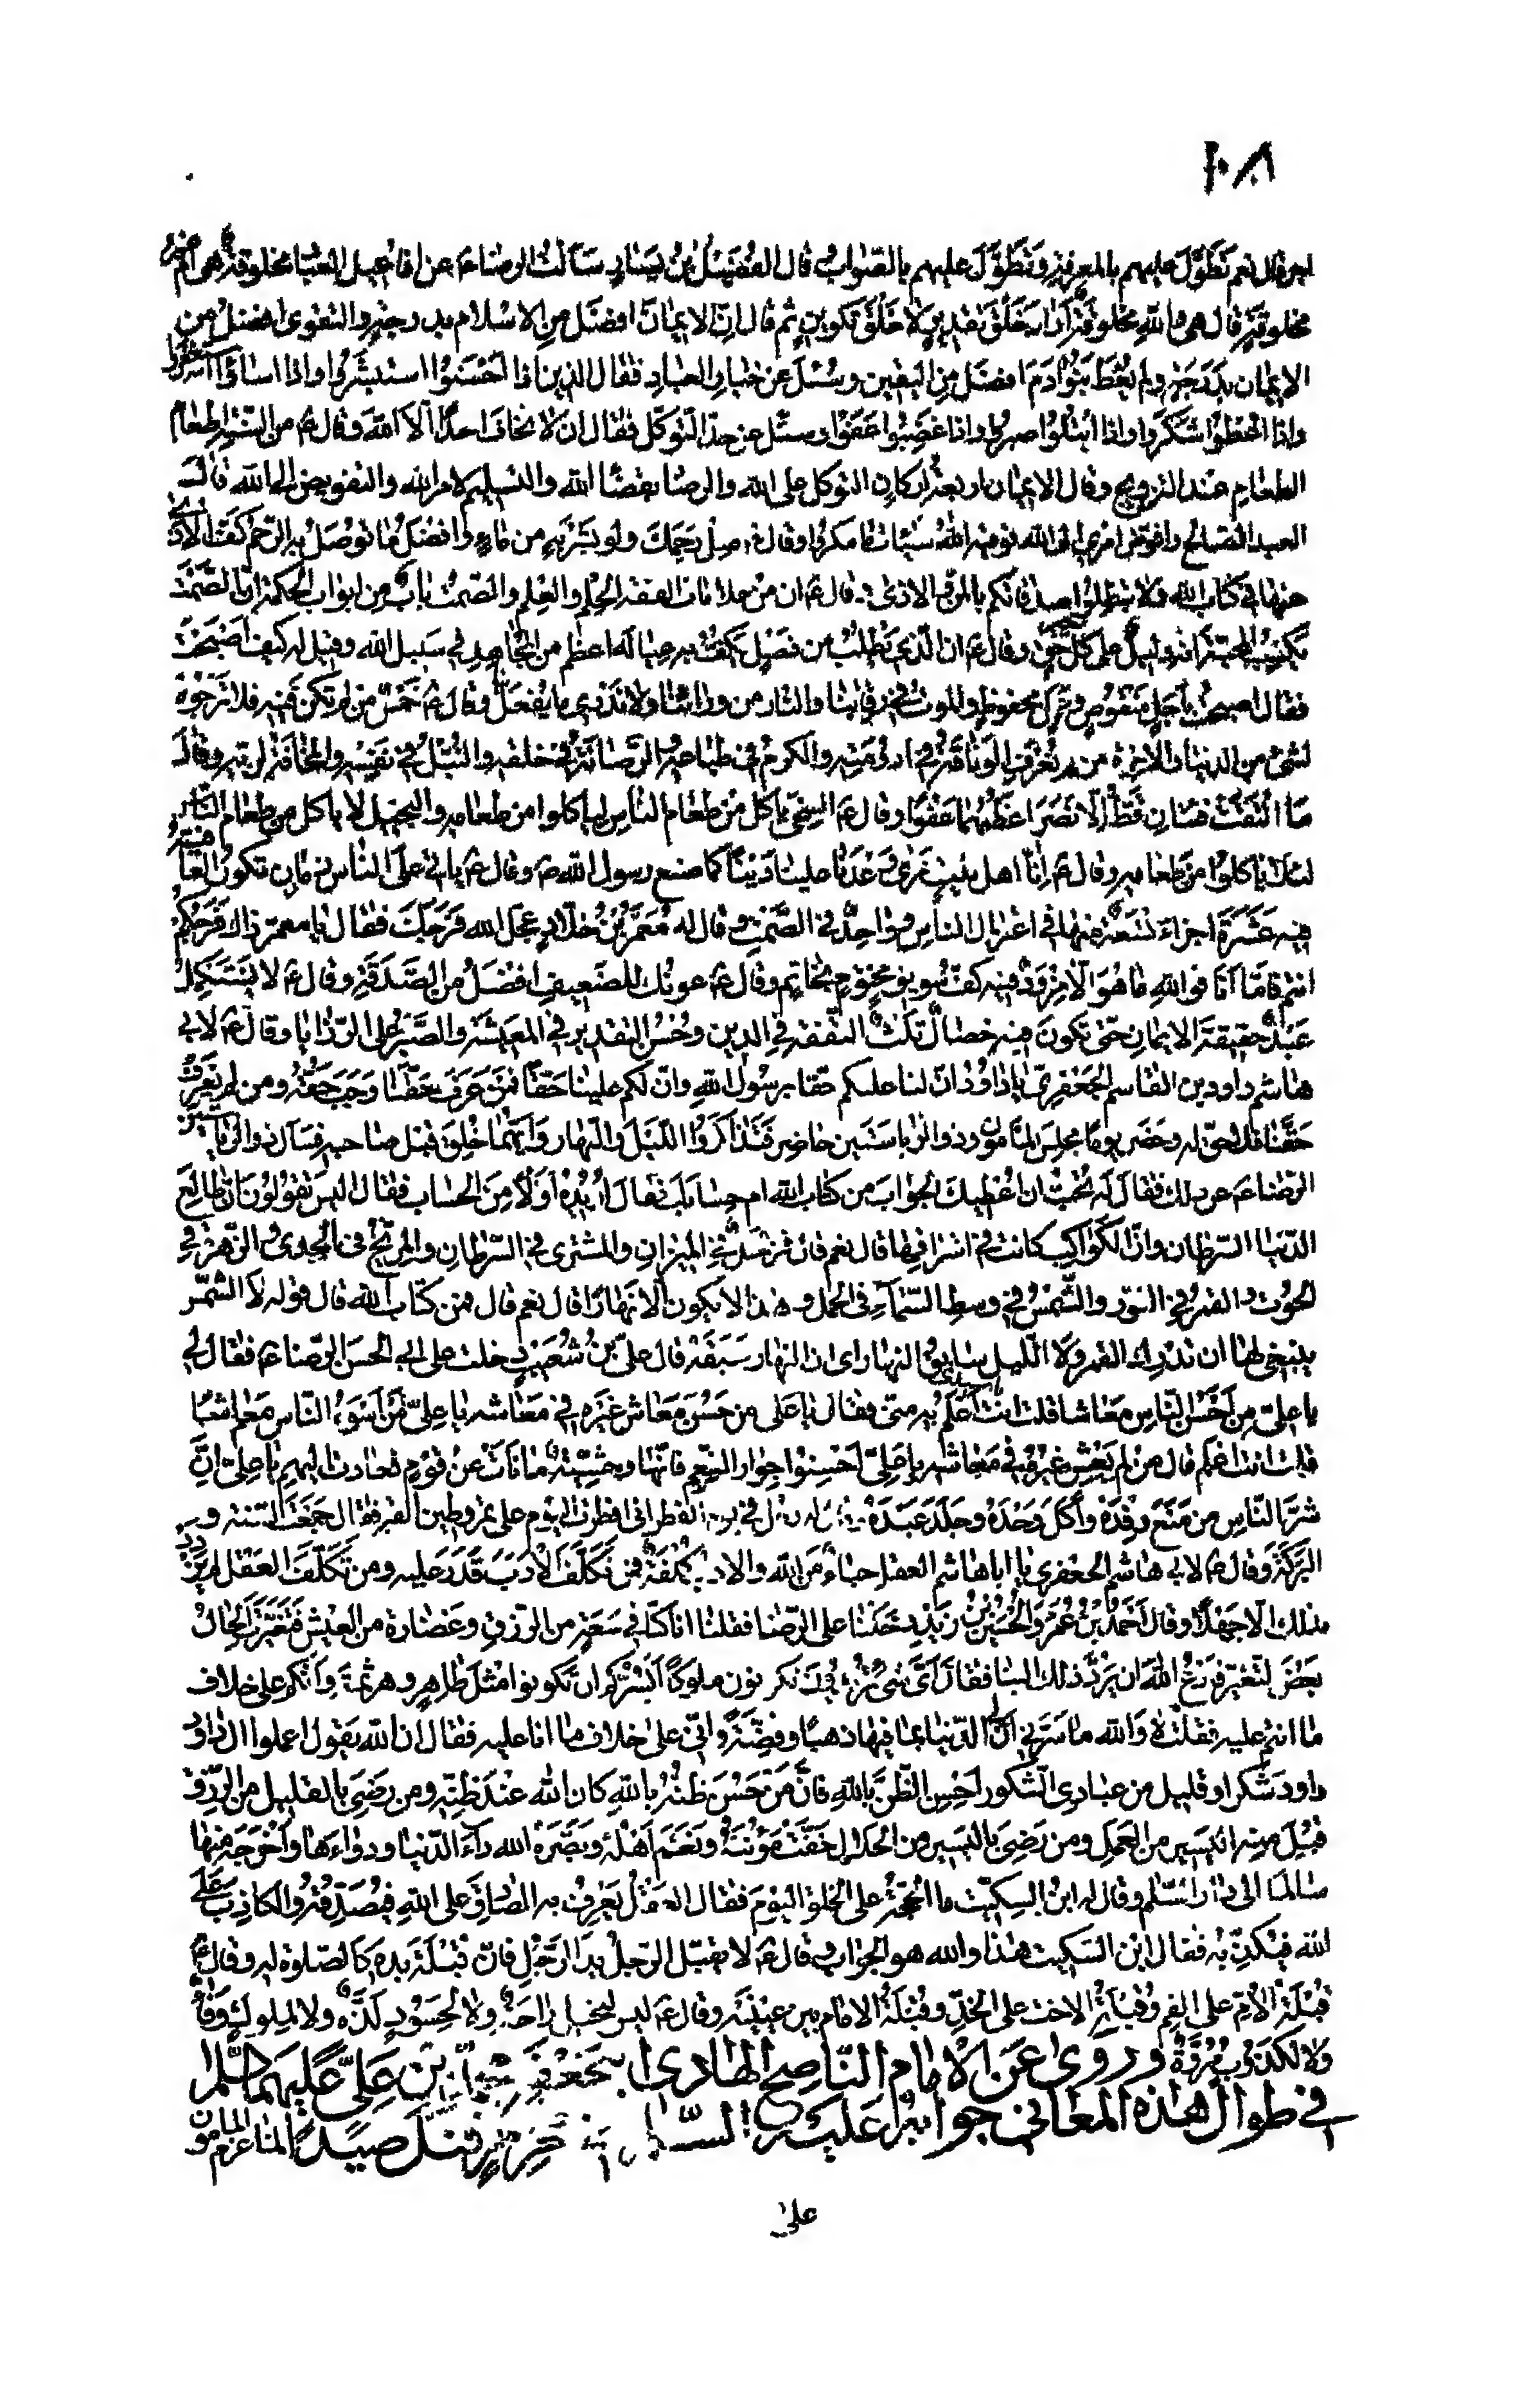 ١٠٨
اجر قال نعم تَطَوَّلَ عليهم بالمعرفة وتَطَوَّلَ عليهم بالصّواب قال الفُضَيْلُ بْنُ يَسار سَاَلتُ الرضاءَ عن افاعيل العباد مخلوقة هى ام غير
مخلوقة قال هى والله مخلوقة اراد خَلْقَ تقدير لا خَلْقَ تكوين ثم قال انّ الايمان افضل من الاسلام بدرجة والتقوى افضل من
الايمان بدرجة ولم يُعْطَ بنُو آدَمَ افضَلَ مِنَ اليقين وسُئلَ عن خيار العباد فقال الذين اذا اَحْسَنُوا استبشروا واذا اساؤا استغفروا
واذا اعْطوا شكروا واذا ابْتلوا صبروا واذا غَضِبُوا عَفَوا وسئل عن حدّ التوكّل فقال ان لا تخافَ احدًا الا الله وقال ع من السنّة اطعام
الطعام عند التزويج وقال الايمان اربعة اركان التوكل على الله والرضا بقضاء الله والتسليم لامر الله والتفويض الى الله قال
العبد الصالح وافوّض امرى الى الله فوقيه اللهُ سيّئات ما مكروا وقال ع صِلْ رحِمَكَ ولو بشَرْبَةٍ من ماءٍ وافضَلُ ما توصَلُ به الرّحِمُ كَفُّ الأذى
عنها فى كتاب الله ولا تبطلوا صدقاتكم بالمنّ والاذى وقال ع ان من علامات الفقه الحِلْم والعِلم والصمتُ بابٌ من ابواب الحكمة انّ الصَّمْتَ
يَكسِبُ المحبّة انه دليلٌ على كلّ خير وقال ع ان الذى يَطْلُبُ من فضل يكفّ به عياله اعظم من المجاهد فى سبيل الله وقيل له كيف اصبحتَ
فقال اصبحتُ بأجلٍ منقوصٍ وعملٍ محفوظٍ والموتُ فى رقابنا والنار من ورائنا ولا نَدْرى ما يُفعَلُ بنا وقال ع خمسٌ من لم تكن فيه فلا ترجوه
لشىء من الدنيا والاخرة من لم تُعْرَفِ الوثاقةُ فى ارومته والكرمُ فى طباعه والرّصانةُ فى خلقه والنُّبْلُ فى نفسه والمخافةُ لربّه وقال
ما الْتَقَتْ فئتان قَطُّ الا نُصِرَ اعظمُهُما عَفوًا وقال ع السخىّ يأكل من طعام الناس ليأكلوا من طعامه والبخيل لا يأكل من طعام الناس
لئلّا يأكلوا من طعامه وقال ع انّا اهل بيتٍ نَرى وَعْدَنا علينا دَيْناً كما صنع رسول الله ص وقال ع يأتى على الناس زمان تكون العافية
فيه عَشَرَة اجزاءٍ تسعةٌ منها فى اعتزال الناس وواحدٌ فى الصَّمْتِ وقال له مُعَمَّرُ بْنُ خَلّاد عجّل الله فَرَجَكَ فقال يا معمر ذاك فَرَجُكُم
انتم فامّا انا فوالله ما هُوَ الّا مِزْوَدٌ فيه كفُّ سويقٍ مختومٍ بخاتم وقال ع عونك للضّعيف افضل من الصَّدَقة وقال ع لا يَسْتَكمِلُ
عَبْدٌ حقيقةَ الايمانِ حتى تكون فيه خصالٌ ثلثٌ التفقّه فى الدين وحُسْنُ التقدير فى المعيشة والصّبرُ على الرّزايا وقال ع لابى
هاشم داود بن القاسم الجعفرىّ يا داوُدُ انّ لنا عليكم حقّا برسول الله وانّ لكم علينا حقًّا فمَنْ عَرَفَ حقّنا وَجَبَ حَقُّهُ ومن لم يَعْرِفْ
حقَّنا فلا حقّ له وحضر يومًا مجلسَ المأمون وذو الرياستَين حاضر فَتَذاكروا اللّيل والنّهار وأيّهما خُلِقَ قبل صاحبه فسأل ذو الرياستين
الرّضاءَ عن ذلك فقال له تحبّ ان اُعْطيكَ الجوابَ من كتاب الله ام حسابك فقال اُريدُهُ اَوَّلاً مِنَ الحساب فقال اليس تقولون انّ طالع
الدّنيا السّرطان وانّ الكواكب كانت فى اشرافها قال نعم قال فزحلٌ فى الميزان والمشترى فى السّرطان والمرّيخُ فى الجدى والزهرة فى
الحُوت والقمرُ فى الثور والشّمسُ فى وسط السّماء فى الحمل وهذا لا يكون الا نهارًا قال نعم قال فمن كتاب الله قال قوله لا الشّمس
ينبغى لها ان تدرك القمر ولا اللّيل سابق النهار اى انّ النهار سَبَقَهُ قال علىّ بنُ شُعَيْب دخلت على ابى الحسن الرّضا ع فقال لى
يا علىّ من أحسنُ النّاس معاشا قلت انت يا سيّدى اعْلَمُ به منّى فقال يا علىّ من حَسُنَ معاش غيره فى معاشه يا علىّ مَنْ أسوَءُ النّاس معاشا
قلت انت اعلم قال من لم يَعِشْ غيرُه فى معاشه يا علىّ اَحْسِنُوا جِوارَ النِعَمِ فانّها وحشيّةٌ ما نأتْ عن قوْمٍ فعادت اليهم يا علىّ انّ
شرَّ النّاس من مَنَعَ رِفْدَهُ وأكل وَحْدَهُ وجَلَدَ عَبْدَهُ وقال له رجل فى يوم الفطر انى افطرت اليوم على تمر وطين القبر فقال جَمَعْتَ السّنة و
البَرَكَةَ وقال ع لابى هاشم الجعفرى يا ابا هاشم العقل حباءٌ من الله والادبُ كُلْفَةٌ فمن تكلّفَ الأدبَ قَدَرَ عليه ومن تكَلّفَ العَقْلَ لم يَزْدَدْ
بذلك الّا جَهْلاً وقال اَحْمدُ بْنُ عُمَرَ والحُسَيْنُ بنُ يزيدَ دَخَلْنا على الرّضا فقلنا انّا كنّا فى سَعَةٍ من الرّزق وغَضارة من العيش فتغيّرتِ الحالُ
بعضَ التّغيّر فادْعُ اللهَ ان يَرُدَّ ذلك الينا فقال اَىَّ شىءٍ تريدون تكونون ملوكًا اَيَسُرُّكم ان تكونوا مثل طاهرٍ وهرثمةَ وانّكم على خلاف
ما انتم عليه فقلتُ لا والله ما سَرَّنى انّ لى الدّنيا بما فيها ذهبًا وفضّةً وانّى على خلاف ما انا عليه فقال ان الله يقول اعملوا ال داود
داود شكرا وقليل من عبادى الشكور اَحْسِنِ الظّنَّ بالله فانَّ مَنْ حَسُنَ ظنّهُ بالله كان الله عِنْدَ ظنّه ومن رَضِىَ بالقليل من الرّزق
قُبِلَ منه اليسير من العمل ومن رَضِىَ باليسير من الحلال خَفَّتْ مَؤُنَتُهُ ونَعَّمَ اَهْلَهُ وبَصَّرَهُ الله داءَ الدّنيا ودواءَها وأخرَجَه منها
سالمًا الى دار السّلام وقال له ابنُ السكّيت ما الحجّةُ على الخلق اليَوْمَ فقال العقلُ يَعْرِفُ به الصادقَ على الله فيُصَدّقُه والكاذبَ على
الله فيُكَذّبُه فقال ابن السكيت هذا والله هو الجواب وقال ع لا يقبّل الرّجلُ يدَ الرّجُلِ فانّ قُبْلَةَ يده كالصّلوة له وقال ع
قُبْلَةُ الأمّ على الفم وقُبْلَةُ الاخت على الخدّ وقُبْلَةُ الامام بين عينَيْه وقال ع ليس لبخيل راحةٌ ولا لحسُودٍ لذّةٌ ولا لملوكٍ وَفاءٌ
ولا لكَذوب مُرُوّةٌ وروى عن الامام النّاصح الهادى ابى جَعْفَر محمد بْن عَلِىّ عليهما السلم
فى طوال هذه المعانى جوابه عليه السّلام فى مُحْرِمٍ قتلَ صيدًا لمّا عزم المأمون
على